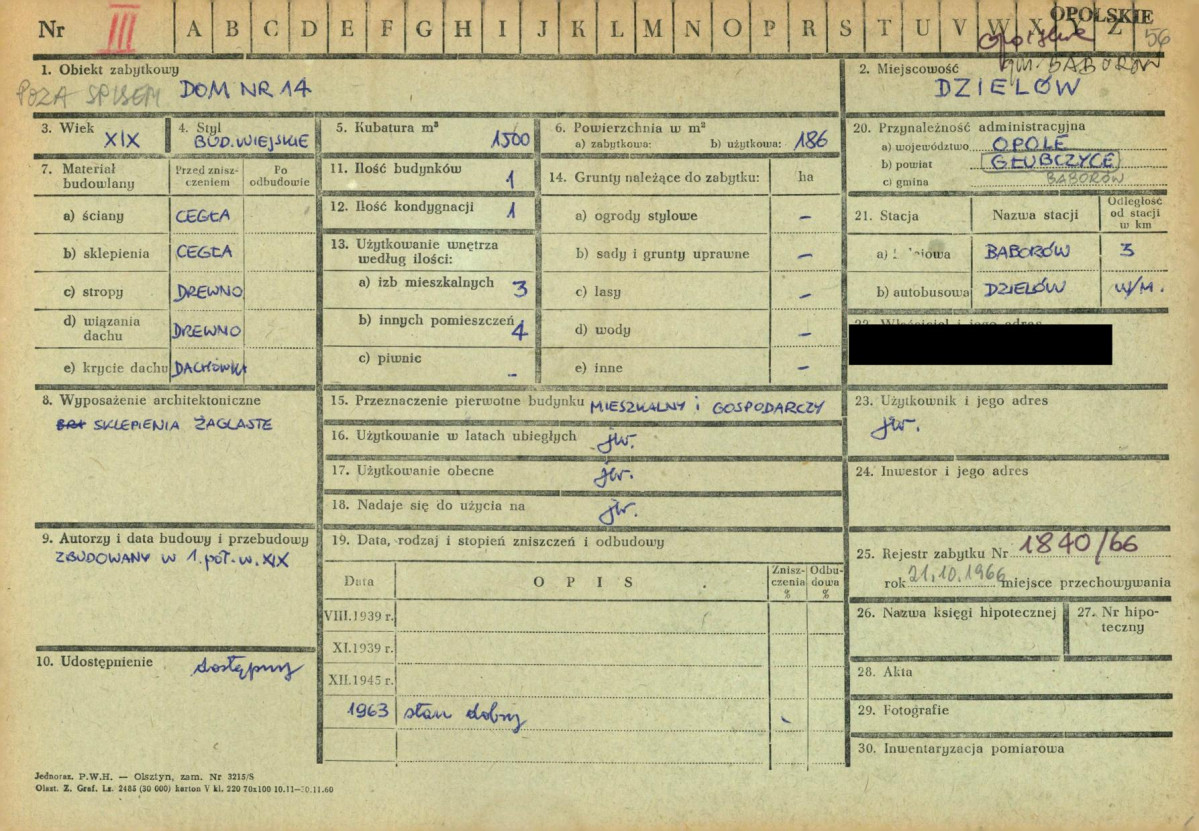 Nr III A B C D E F G H I J K L M N O P R S T U V W X Y Z OPOLSKIE
56
gm. BABORÓW
1. Obiekt zabytkowy
POZA SPISEM DOM NR 14
2. Miejscowość
DZIELÓW
3. Wiek
XIX
4. Styl
BUD. WIEJSKIE
5. Kubatura m³
1500
6. Powierzchnia w m²
a) zabytkowa: b) użytkowa: 186
7. Materiał budowlany
Przed znisz-
czeniem
Po
odbudowie
a) ściany CEGŁA
b) sklepienia CEGŁA
c) stropy DREWNO
d) wiązania
dachu DREWNO
e) krycie dachu DACHÓWKA
8. Wyposażenie architektoniczne
SKLEPIENIA ŻAGLASTE
9. Autorzy i data budowy i przebudowy
ZBUDOWANY W 1. POŁ. W. XIX
10. Udostępnienie dostępny
11. Ilość budynków 1
12. Ilość kondygnacji 1
13. Użytkowanie wnętrza
według ilości:
a) izb mieszkalnych 3
b) innych pomieszczeń 4
c) piwnic -
14. Grunty należące do zabytku: ha
a) ogrody stylowe -
b) sady i grunty uprawne -
c) lasy -
d) wody -
e) inne -
15. Przeznaczenie pierwotne budynku MIESZKALNY i GOSPODARCZY
16. Użytkowanie w latach ubiegłych jw.
17. Użytkowanie obecne jw.
18. Nadaje się do użycia na jw.
19. Data, rodzaj i stopień zniszczeń i odbudowy
Data OPIS
Znisz-
czenia
%
Odbu-
dowa
%
VIII.1939 r.
XI.1939 r.
XII.1945 r.
1963 stan dobry -
20. Przynależność administracyjna
a) województwo OPOLE
b) powiat GŁUBCZYCE
c) gmina BABORÓW
21. Stacja Nazwa stacji
Odległość
od stacji
w km
BABORÓW 3
b) autobusowa DZIELÓW w/m.
22. Właściciel i jego adres
23. Użytkownik i jego adres
jw.
24. Inwestor i jego adres
25. Rejestr zabytku Nr 1840/66
rok 21.10.1966 miejsce przechowywania
26. Nazwa księgi hipotecznej
27. Nr hipo-
teczny
28. Akta
29. Fotografie
30. Inwentaryzacja pomiarowa
Jednoraz. P.W.H. — Olsztyn, zam. Nr 3215/S
Olszt. Z. Graf. Lz. 2485 (30 000) karton V kl. 220 70x100